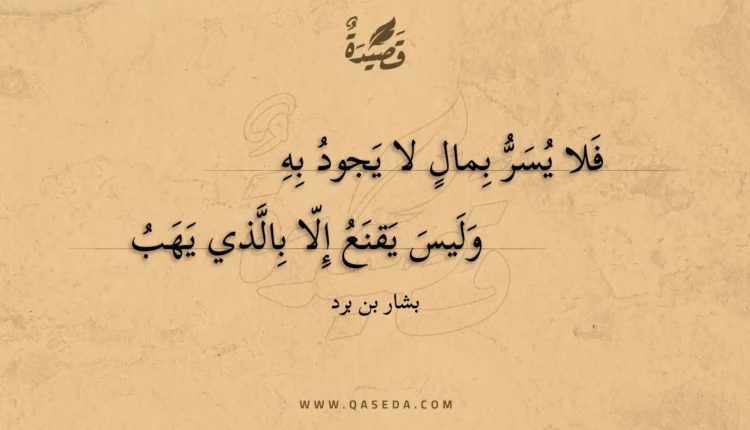 قَصِيْدَةٌ
فَلا يُسَرُّ بِمالٍ لا يَجودُ بِهِ
وَلَيسَ يَقنَعُ إِلّا بِالَّذي يَهَبُ
بشار بن برد
WWW.QASEDA.COM